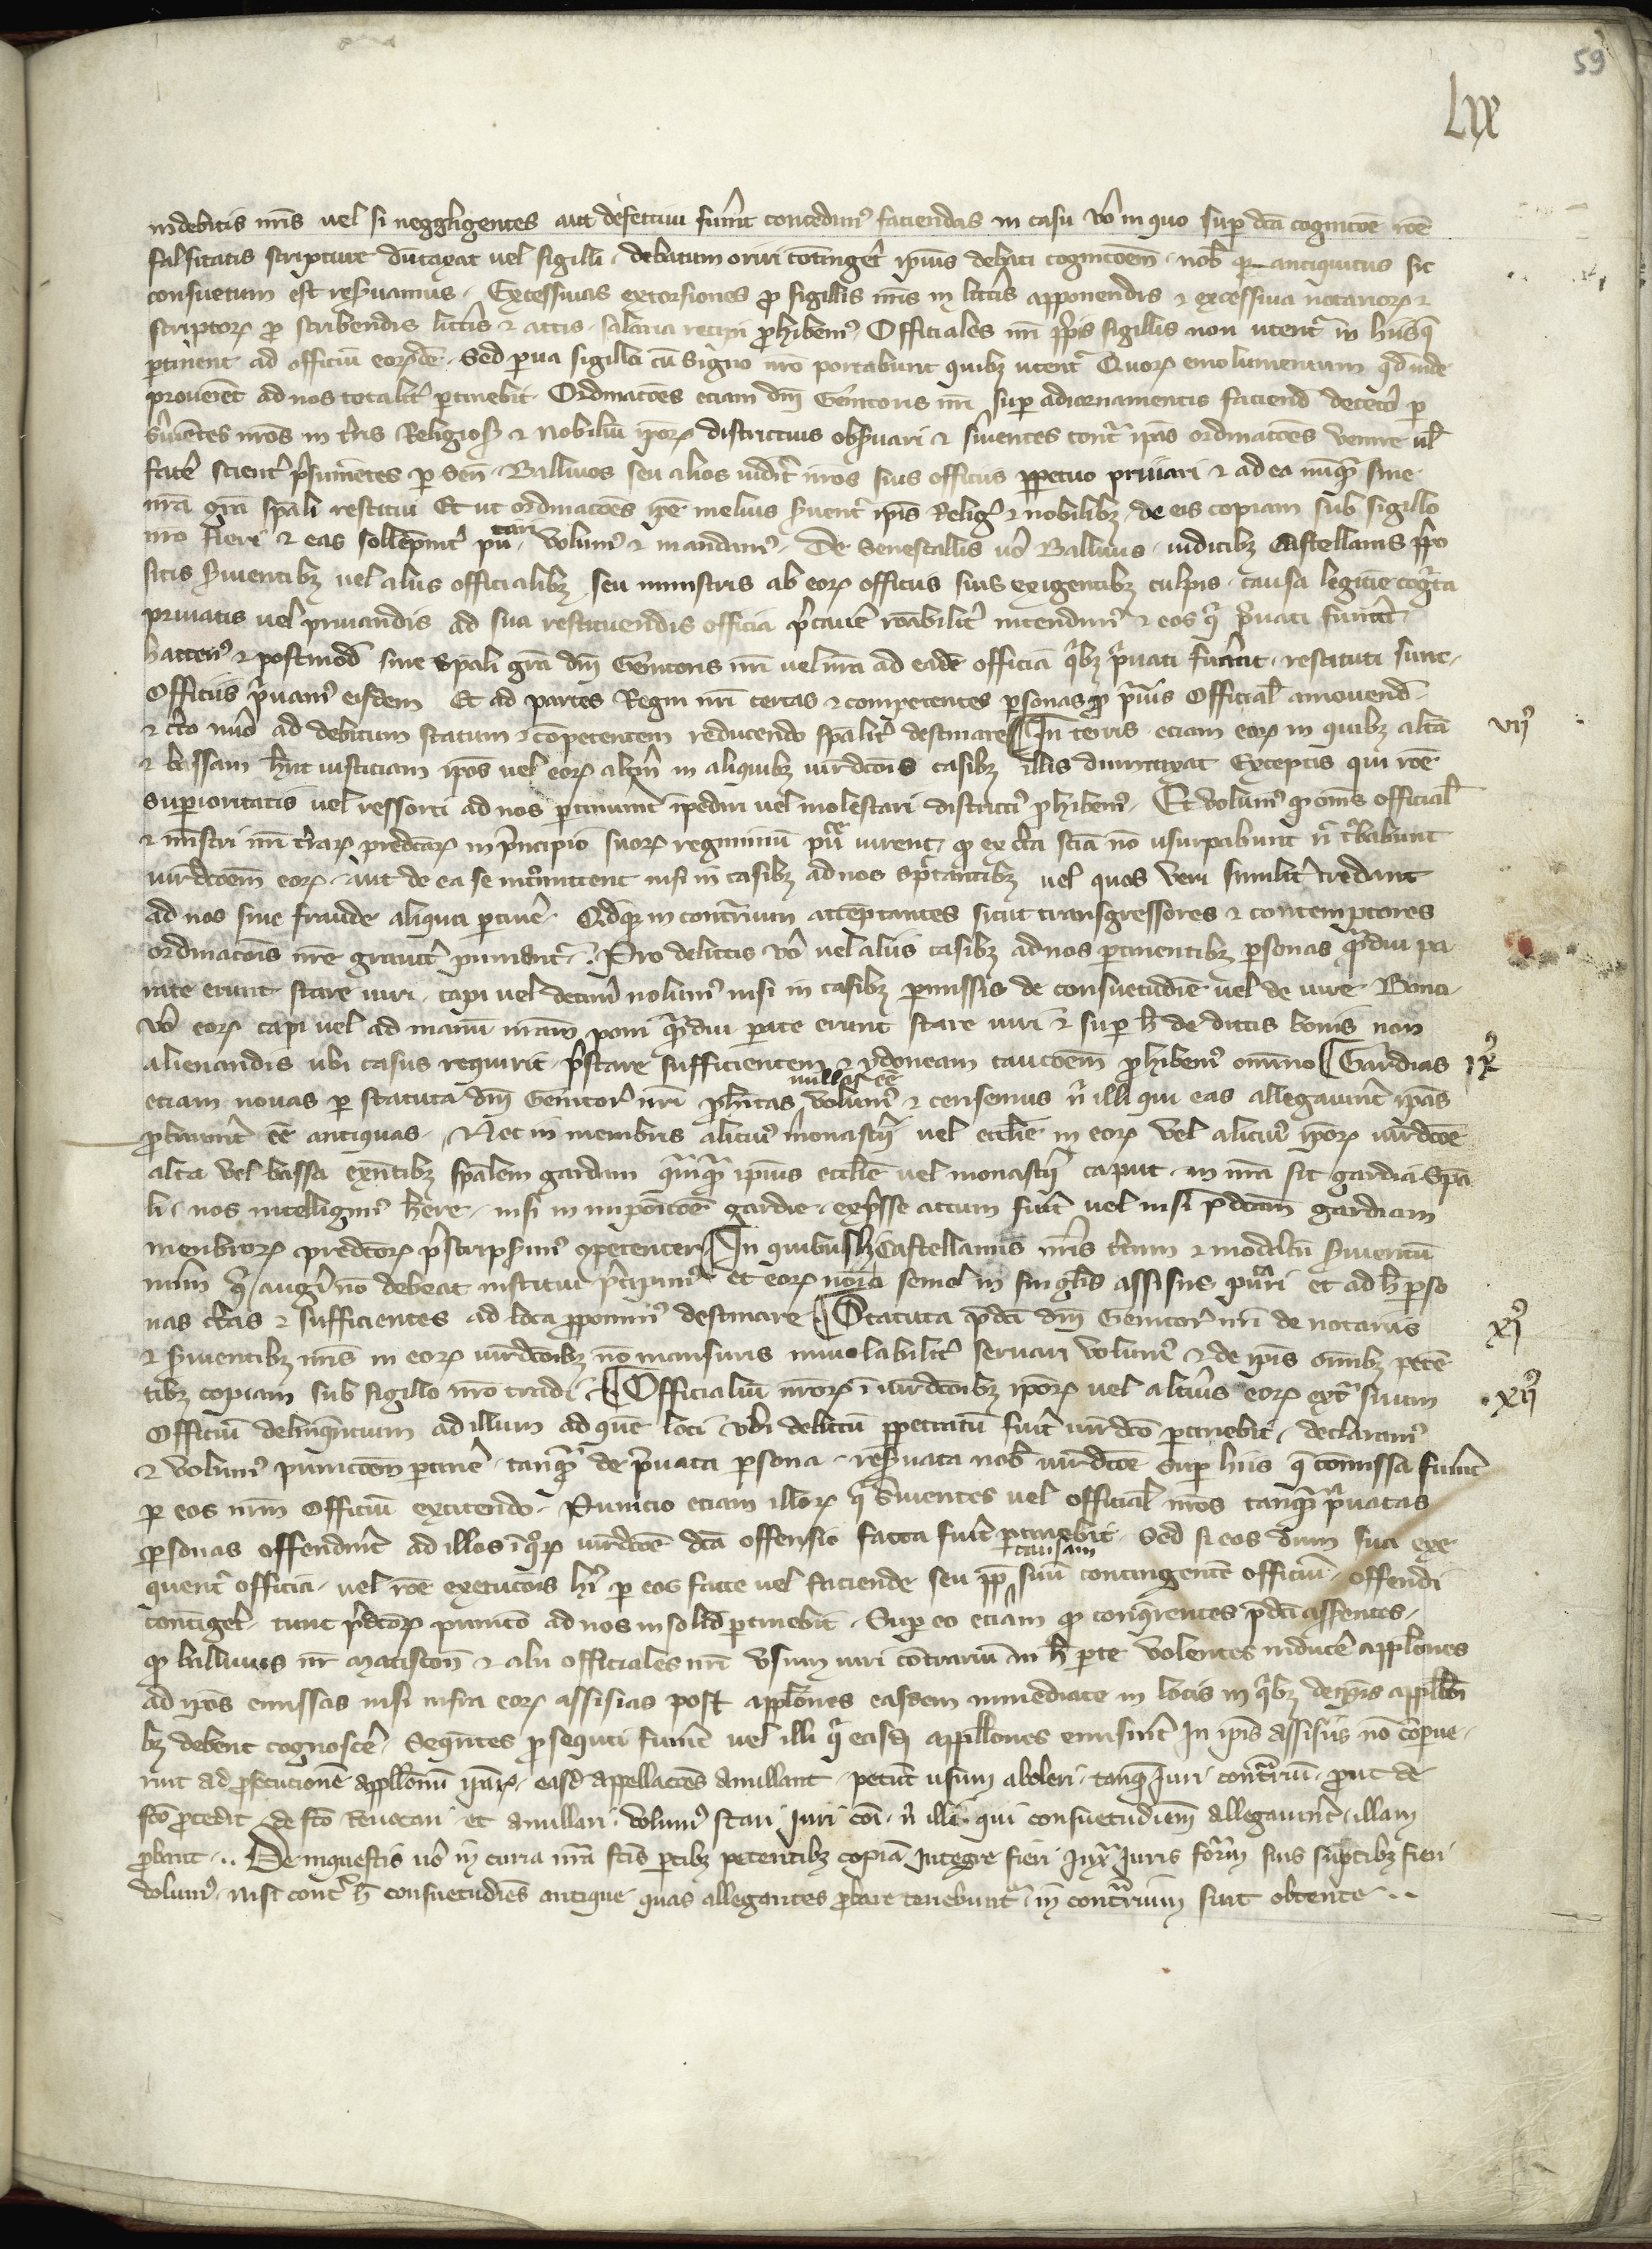 59
lix
indebitis nris vel si neggligentes aut defectivi fuerint concedimus faciendas in casu vero in quo super dca cognicoe roe
falsitatis scripture dutaxat vel sigilli debatum oriri cotingeret ipius debati cognicoem nob quia antiquitus sic
consuetum est reservamus Excessivas extorsiones pro sigillis nris in litteris apponendis et excessiva notariorum et
scriptorum pro scribendis litteris et actis salaria recipi prohibemus Officiales nri propriis sigillis non utentur in hiisque
pertinent ad officiu eorumde Sed parva sigilla cu signo nro portabunt quibus utentur Quorum emolumentum quod inde
proveniet ad nos totaliter pertinebit Ordinacoes eciam dni Genitoris nri super adiornamentis faciend decetero per
servientes nros in terris Religiosorum et Nobiliu ipsorum districtius observari et servientes contra ipas ordinacoes venire vel
facere scienter presumentes per Sen Ballivos seu alios iudic nros suis officiis perpetuo privari et ad ea nunquam sine
nra gra spali restitui Et ut ordinacoes ipe melius serventur ipis Religiosis et nobilibus de eis copiam sub sigillo
nro fieri et eas sollepniter publicari volumus et mandamus De Senescallis vero Ballivis iudicibus Castellanis prepo
sitis servientibus vel aliis officialibus seu ministris ab eorum officiis suis exigentibus culpis causa legitime cognita
privatis vel privandis ad sua restituendis officia precavere roabiliter intendimus et eos qui privati fuerint
hactenus et postmodum sine spali gra dni Genitoris nri vel nra ad eade officia quibus privati fuerant restituti sunt
Officiis privamus eisdem Et ad partes Regni nri certas et competentes personas pro premissis Official amovend
et certo numero ad debitum statum et competentem reducendo spaliter destinare In terris eciam eorum in quibus alta vii
et bassam habent iusticiam ipos vel eorum alterum in aliquibus iurdcois casibus illis dumtaxat exceptis qui roe
superioritatis vel ressorti ad nos pertinuerint impediri vel molestari districtius prohibemus Et volumus quod oms official
et ministri nri terrarum predictarum in principio suorum regiminum publice iurent quod ex certa scia no usurpabunt nec turbabunt
iurdcoem eorum aut de ea se intromittent nisi in casibus ad nos spectantibus vel quos veri similiter credant
ad nos sine fraude aliqua pertinere Quodque in contrarium acceptantes sicut transgressores et contemptores
ordinacois nre graviter puniantur Pro delictis vero vel aliis casibus ad nos pertinentibus personas quamdiu pa
rate erunt stare iuri capi vel detineri nolumus nisi in casibus permissis de consuetudine vel de iure Bona
vero eorum capi vel ad manu nram poni quamdiu parate erunt stare iuri et super hoc de dictis bonis non
alienandis ubi casus requirit prestare sufficientem et ydoneam caucoem prohibemus omnino Gardias ix
eciam novas per statuta dni Genitoris nri prohibitas nullas esse volumus et censemus nisi illi qui eas allegaverint ipas
probaverint esse antiquas Nec in membris alicuius monasterii vel ecclesie in eorum vel alicuius ipsorum iurdcoe
alta vel bassa existentibus spalem gardiam quamquam ipius ecclesie vel monasterii caput in nra sit gardia spa
li nos intelligimus habere nisi in imposicoe gardie expresse actum fuerit vel nisi predcam gardiam
menbrorum predictorum prescripserimus competenter In quibuslibet Castellaniis nris certum et moderatu servientu
numerum qui augeri no debeat institui precipimus et eorum noia semel in singulis assisiis publicari et ad hoc perso
nas certas et sufficientes ad loca proponimus destinare Statuta predca dni Genitoris nri de notariis xi
et servientibus nris in eorum iurdcoibus no mansuris inviolabiliter servari volumus et de ipis omnibus peten
tibus copiam sub sigillo nro tradi Officialiu nrorum in iurdcoibus ipsorum vel alterius eorum extra suum xii
Officiu delinquentium ad illum ad quem loci ubi delictu perpetratu fuerit iurdco pertinebit declaramus
et volumus punicoem pertinere tanquam de privata persona reservata nob iurdcoe super hiis que comissa fuerint
per eos nrum Officiu exercendo Punicio eciam illorum qui servientes vel official nros tanquam privatas
personas offenderint ad illos in quorum iurdcoe dca offensio facta fuerit pertinebit Sed si eos dum sua exe
quentur officia vel roe execucois huiusmodi per eos facte vel faciende seu propter causam suu contingente officiu offendi
contigerit tunc predictorum punico ad nos insolidum pertinebit Super eo eciam quod conquerentes predicti asserentes
quod ballivus nr Matiscon et alii officiales nri usum iuri contrariu in hac parte volentes inducere appellacones
ad ipos emissas nisi infra eorum assisias post appellacones easdem immediate in locis in quibus de ipis appellacoi
bus debent cognoscere sequentes prosequuti fuerint vel illi qui easdem appellacones emiserint in ipis assisiis no comparue
rint ad prosecucione appellaconum ipsarum easdem appellacoes anullant petunt usum aboleri tanquam iuri contrariu prout de
fco procedit de fco revocari et anullari volumus stari iuri coi nisi illi qui consuetudinem allegaverint illam
probent De inquestis vero in curia nra fcis partibus petentibus copia integre fieri iuxta iuris forma suis sumptibus fieri
volumus nisi contra hoc consuetudines antique quas allegantes probare tenebuntur in contrarium sint obtente